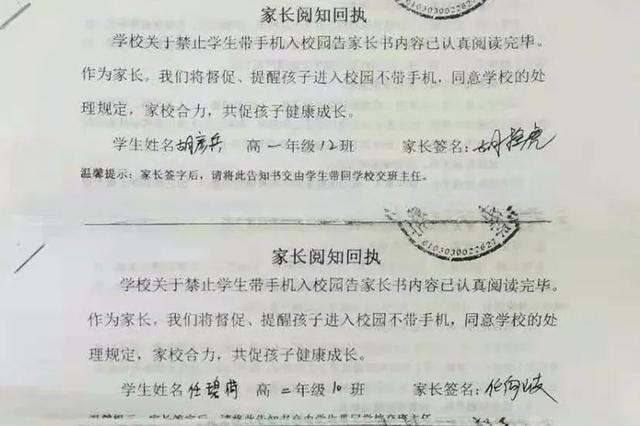 家长阅知回执
学校关于禁止学生带手机入校园告家长书内容已认真阅读完毕。
作为家长，我们将督促、提醒孩子进入校园不带手机，同意学校的处
理规定，家校合力，共促孩子健康成长。
学生姓名胡彦兵 高一年级12班 家长签名：胡
温馨提示：家长签字后，请将此告知书交由学生带回学校交班主任。
6103030022627
家长阅知回执
学校关于禁止学生带手机入校园告家长书内容已认真阅读完毕。
作为家长，我们将督促、提醒孩子进入校园不带手机，同意学校的处
理规定，家校合力，共促孩子健康成长。
学生姓名任 高二年级10班 家长签名：任
温馨提示：家长签字后，请将此告知书交由学生带回学校交班主任